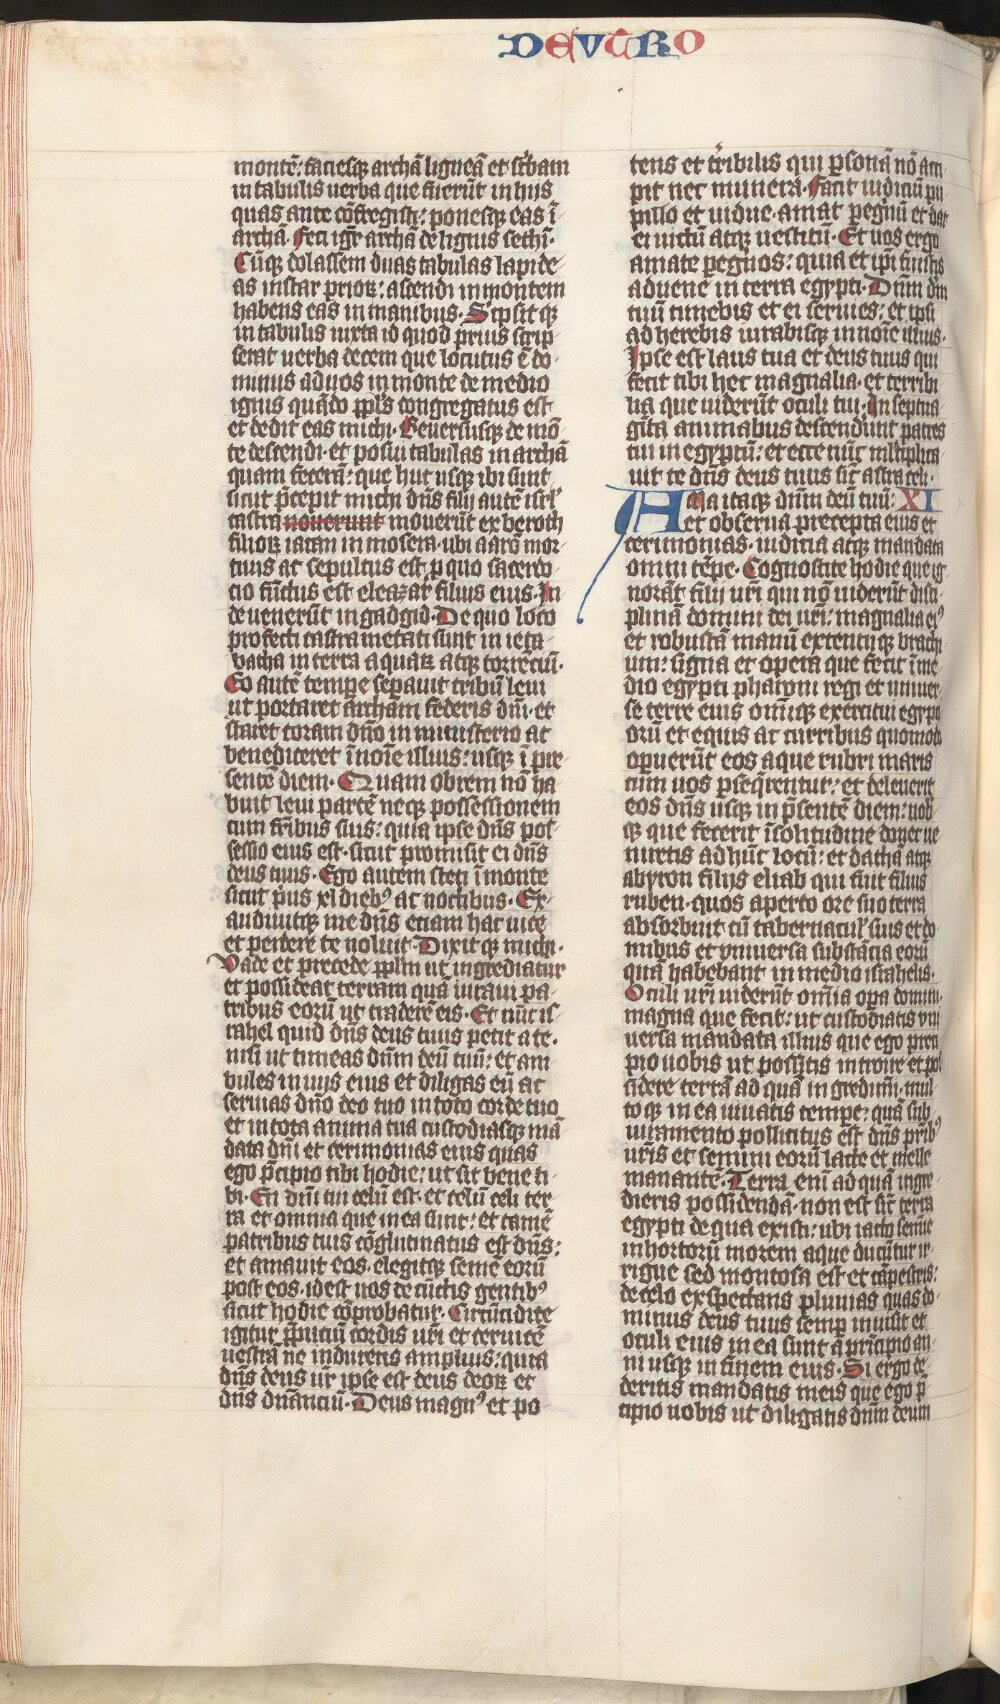 DEVTRO
montē: faciesqꝫ archā ligneā et sc̄bam
in tabulis uerba que fuerūt in hijs
quas ante cōfregisti: ponesqꝫ eas ī
archā. Feci igr̄ archā de lignis sethī.
Cūqꝫ dolassem duas tabulas lapide
as instar prioꝝ: ascendi in montem
habens eas in manibus. Sċpsit qꝫ
in tabulis iuxta id quod prius scrip
serat uerba decem que locutus ē do
minus ad uos in monte de medio
ignis quādo ppl̄s congregatus est
et dedit eas michi. Reuersusqꝫ de mō
te descendi. et posui tabulas in archā
quam fecerā: que huc usqꝫ ibi sunt
sicut p̄cepit michi dn̄s filij autē isrl̄
castra nouerunt mouerūt ex beroth
filioꝝ iacan in mosera. ubi aarō mor
tuus ac sepultus est p quo sacerdo
cio fūctus est eleazar filius eius. In
de uenerūt in gadgad. De quo loco
profecti castra metati sunt in ieta
batha in terra aquaꝝ atqꝫ torrēciū.
Eo autē tempe sepauit tribū leui
ut portaret archam federis dn̄i. et
staret coram dn̄o in ministerio ac
benediceret ī noīe illius: usqꝫ ī pre
sentē diem. Quam obrem nō ha
buit leui partē neqꝫ possessionem
cum frībus suis: quia ipse dn̄s pos
sessio eius est. sicut promisit ei dn̄s
deus tuus. Ego autem steti ī monte
sicut pͥus xl diebꝰ ac noctibus. Ex
audiuitqꝫ me dn̄s etiam hac uice
et perdere te noluit Dixit qꝫ michi.
Vade et precede pplm̄ ut ingrediatur
et possideat terram quā iuraui pa
tribus eorū ut traderē eis. Et nūc is
rahel quid dn̄s deus tuus petit a te.
nisi ut timeas dn̄m deū tuū: et am
bules in uijs eius et diligas eū ac
seruias dn̄o deo tuo in toto corde tuo
et in tota anima tua custodiasqꝫ mā
data dn̄i et cerimonias eius quas
ego p̄cipio tibi hodie: ut sit bene ti
bi. En dn̄i tui celū est. et celū celi ter
ra et omnia que in ea sunt: et tamē
patribus tuis cōglutinatus est dn̄s:
et amauit eos. elegitqꝫ semē eorū
post eos. id est uos de cūctis gentibꝰ
sicut hodie cōprobatur. Circūcidite
igitur p̄puciū cordis ur̄i et ceruicē
uestrā ne induretis amplius: quia
dn̄s deus ur̄ ipse est deus deoꝝ et
dn̄s dn̄anciū. Deus magnꝰ et po
tens et tr̄ribilis qui psonā nō acci
pit nec munera. Facit iudiciū pu
pillo et uidue. amat pegn̄ū et dat
ei uictū atqꝫ uestitū. Et uos ergo
amate pegn̄os: quia et ipi̅ fuistis
aduene in terra egypti. Dn̄m dm̄
tuū timebis et ei seruies: et ipsi
adherebis iurabisqꝫ in noīe illius.
Ipse est laus tua et deus tuus qui
fecit tibi hec magnalia. et terribi
lia que uiderūt oculi tui. In septua
gīta animabus descendunt patres
tui in egyptū: et ecce nūc ml̄tiplica
uit te dn̄s deus tuus sic̄ astra celi.
Ama itaqꝫ dn̄m deū tuū: XI
et obserua precepta eius et
cerimonias. iudicia atqꝫ mandata
omni tēpe. Cognoscite hodie que ig
norāt filij ur̄i qui nō uiderūt disci
plinā domini dei ur̄i. magnalia eiꝰ
et robustā manū extentūqꝫ brachi
um: signa et opera que fecit ī me
dio egypti pharoni regi et vniuer
se terre eius omīqꝫ exercitui egypci
orū et equis ac curribus quomodo
operuerūt eos aque rubri maris
cum uos pseq̄rentur: et deleuerit
eos dn̄s usqꝫ in p̄sentē diem: uob
qꝫ que fecerit ī solitudine donec ue
niretis ad hūc locū: et dathā atqꝫ
abyron filijs eliab qui fuit filius
ruben. quos aperto ore suo terra
absorbuit cū tabernacul̄ suis et do
mibus et vniuersa substācia eorū
quā habebant in medio israhelis.
Oculi ur̄i uiderūt om̄ia opa domini
magna que fecit: ut custodiatis vni
uersa mandata illius que ego preci
pio uobis ut possitis introire et pos
sidere terrā ad quā ingredimī. mul
to qꝫ in ea uiuatis tempe: quā sub
iuramento pollicitus est dn̄s prībꝰ
ur̄is et semini eorū lacte et melle
manantē. Terra enī ad quā ingre
dieris possidendā. non est sic̄ terra
egypti de qua existi: ubi iacto semīe
in hortorū morem aque ducūtur ir
rigue sed montosa est et cāpestris:
de celo exspectans pluuias quas do
minus deus tuus semp inuisit et
oculi eius in ea sunt a principio an
ni usqꝫ in finem eius. Si ergo obe
deritis mandatis meis que ego p̄
cipio uobis ut diligatis dn̄m deum